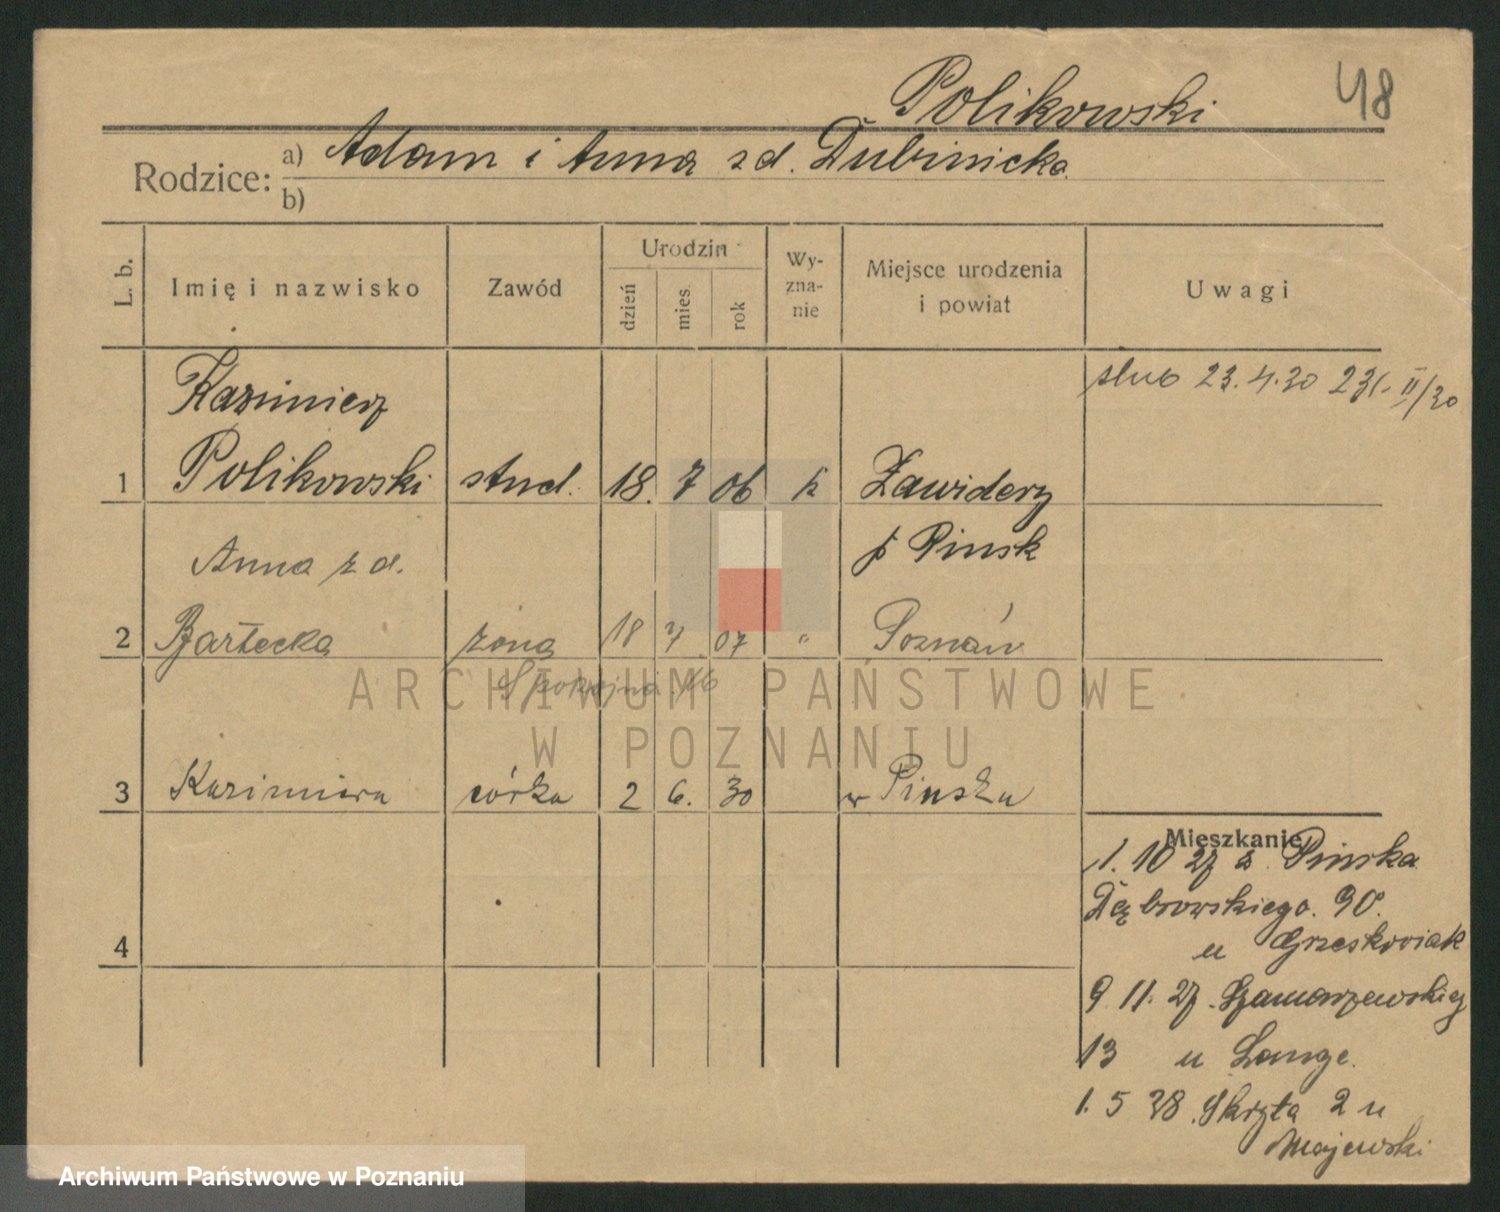 Polikowski
48
Rodzice: a) Adam i Anna zd. Dubinicka
b)
L. b.
Imię i nazwisko
Zawód
Urodzin
dzień mies rok
Wy-
zna-
nie
Miejsce urodzenia
i powiat
Uwagi
ślub 23.4.30 II/30
Kazimierz
1 Polikowski stud. 18. 7 06 k Zawidery
p Pinsk
Anna z d.
2 Bartecka żona 18 7 07 " Poznań
Spokojna 16
3 Kazimiera córka 2 6. 30 w Pińsku
4
Mieszkanie
1. 10 27 z Pinska
Dąbrowskiego. 90.
u Grzeskowiak
9. 11. 27. Szamarzewskiej
13 u Lange.
1. 5 28. Skryta 2 u
Majewski
ARCHIWUM PAŃSTWOWE
W POZNANIU
Archiwum Państwowe w Poznaniu